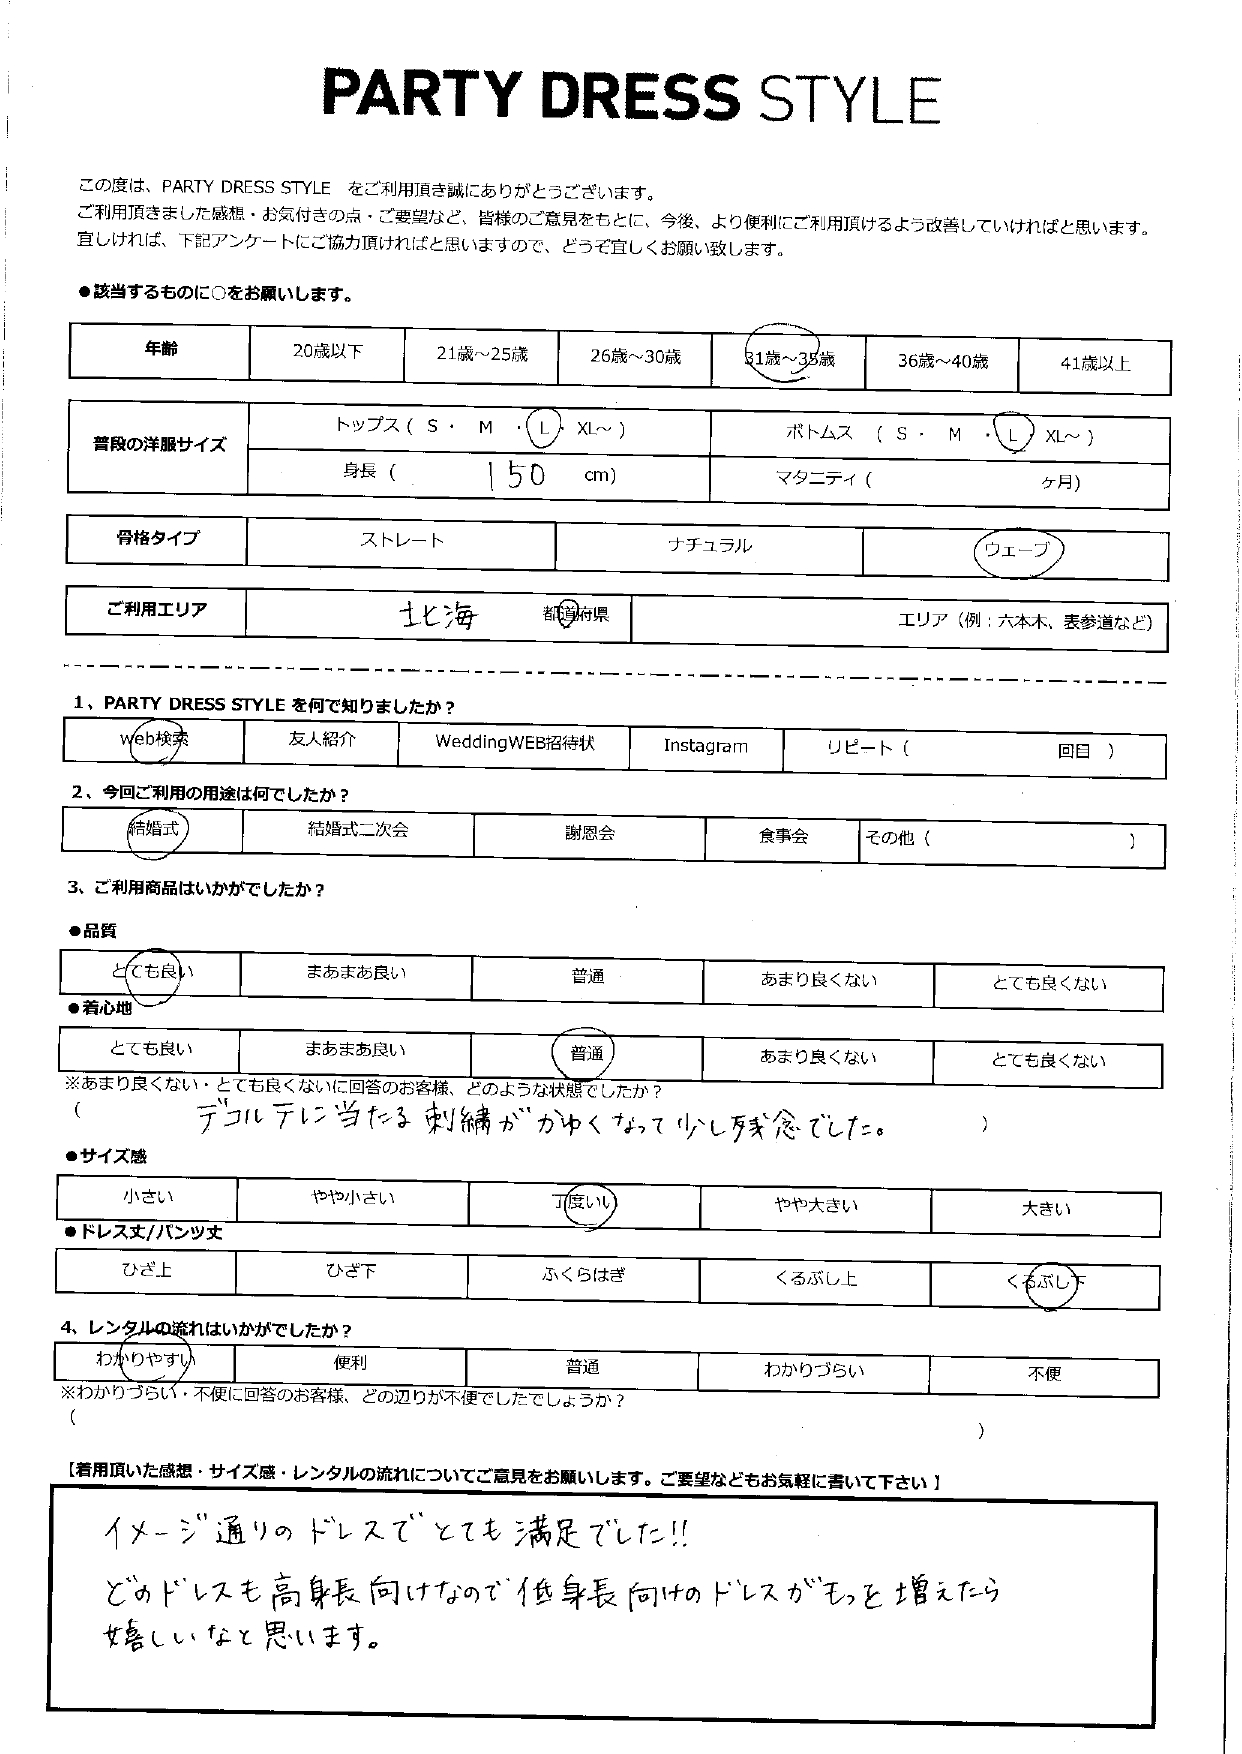 PARTY DRESS STYLE
この度は、PARTY DRESS STYLE をご利用頂き誠にありがとうございます。
ご利用頂きました感想・お気付きの点・ご要望など、皆様のご意見をもとに、今後、より便利にご利用頂けるよう改善していければと思います。
宜しければ、下記アンケートにご協力頂ければと思いますので、どうぞ宜しくお願い致します。
●該当するものに○をお願いします。
年齢 20歳以下 21歳～25歳 26歳～30歳 31歳～35歳 36歳～40歳 41歳以上
普段の洋服サイズ
トップス ( S ・ M ・ L ・ XL～ ) ボトムス ( S ・ M ・ L ・ XL～ )
身長 ( 150 cm) マタニティ ( ヶ月)
骨格タイプ ストレート ナチュラル ウェーブ
ご利用エリア 北海 都道府県 エリア（例：六本木、表参道など）
1、PARTY DRESS STYLE を何で知りましたか？
web検索 友人紹介 WeddingWEB招待状 Instagram リピート ( 回目 )
2、今回ご利用の用途は何でしたか？
結婚式 結婚式二次会 謝恩会 食事会 その他 ( )
3、ご利用商品はいかがでしたか？
●品質
とても良い まあまあ良い 普通 あまり良くない とても良くない
●着心地
とても良い まあまあ良い 普通 あまり良くない とても良くない
※あまり良くない・とても良くないに回答のお客様、どのような状態でしたか？
( デコルテに当たる刺繍がかゆくなって少し残念でした。 )
●サイズ感
小さい やや小さい 丁度いい やや大きい 大きい
●ドレス丈/パンツ丈
ひざ上 ひざ下 ふくらはぎ くるぶし上 くるぶし下
4、レンタルの流れはいかがでしたか？
わかりやすい 便利 普通 わかりづらい 不便
※わかりづらい・不便に回答のお客様、どの辺りが不便でしたでしょうか？
( )
【着用頂いた感想・サイズ感・レンタルの流れについてご意見をお願いします。ご要望などもお気軽に書いて下さい 】
イメージ通りのドレスでとても満足でした!!
どのドレスも高身長向けなので低身長向けのドレスがもっと増えたら
嬉しいなと思います。